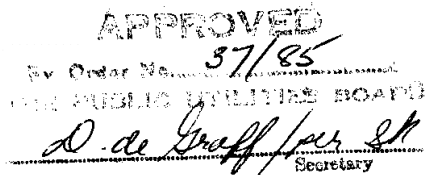 APPROVED
By Order No. 37/85
THE PUBLIC UTILITIES BOARD
D. de Graff / per SR
Secretary